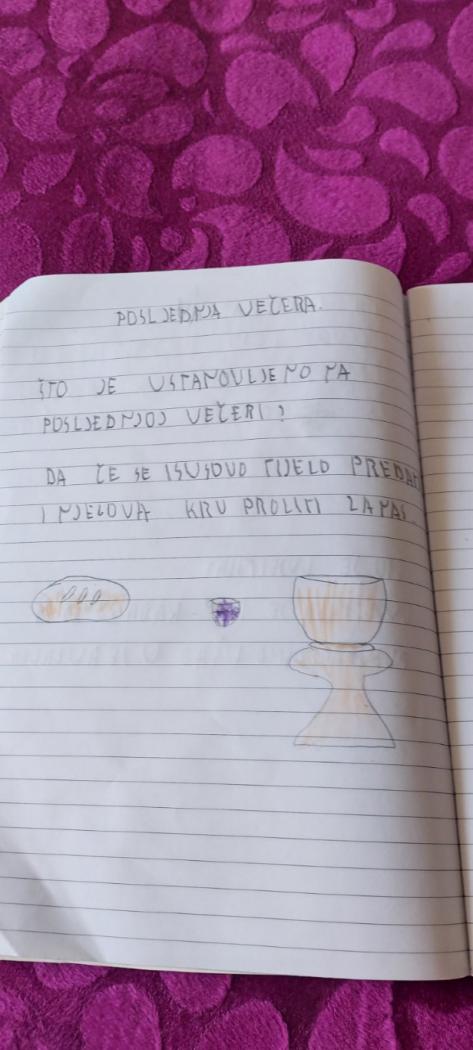 POSLJEDNJA VEČERA.
ŠTO JE USTANOVLJENO NA
POSLJEDNJOJ VEČERI?
DA ĆE SE ISUSOVO TIJELO PREDAT
I NJEGOVA KRV PROLITI ZA NAS.